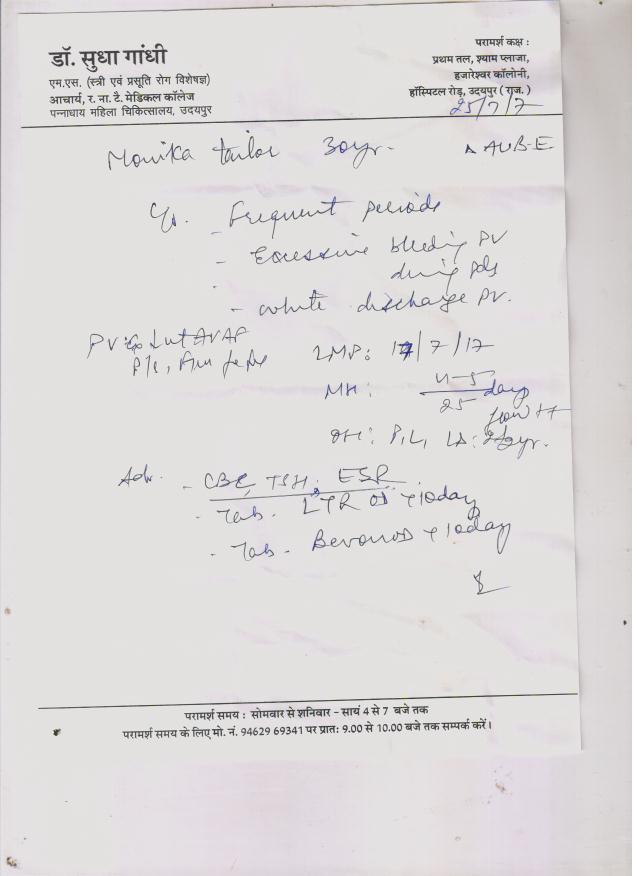 डॉ. सुधा गांधी
एम.एस. (स्त्री एवं प्रसूति रोग विशेषज्ञ)
आचार्य, र. ना. टै. मेडिकल कॉलेज
पन्नाधाय महिला चिकित्सालय, उदयपुर
परामर्श कक्ष :
प्रथम तल, श्याम प्लाजा,
हजारेश्वर कॉलोनी,
हॉस्पिटल रोड़, उदयपुर ( राज. )
25/7/17
Monika tailor 30yr.
AUB-E
- Frequent periods
- Excessive bleeding PV
during pds
- white discharge PV.
PV: ut AVAF
LMP: 17/7/17
MH: 4-5/25 days
flow ++
OH: P1L1 LD: yr.
Adv. - CBC, TSH, ESR
- Tab. OD x 10 day
- Tab. x 10 day
परामर्श समय : सोमवार से शनिवार - सायं 4 से 7 बजे तक
परामर्श समय के लिए मो. नं. 94629 69341 पर प्रातः 9.00 से 10.00 बजे तक सम्पर्क करें।